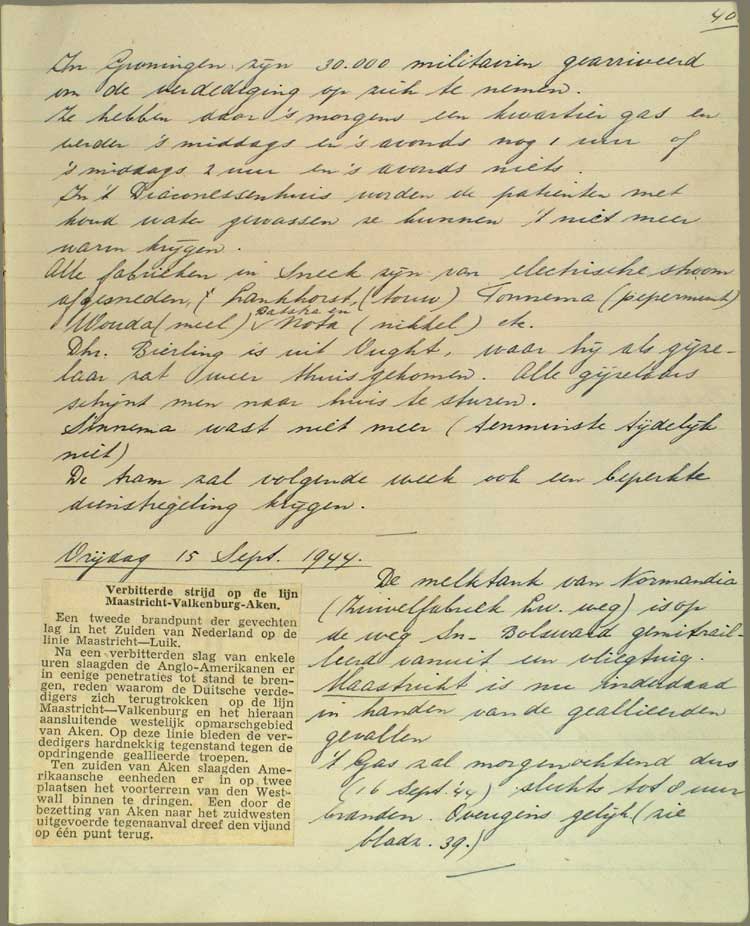 40
In Groningen zijn 30.000 militairen gearriveerd
om de verdediging op zich te nemen.
Ze hebben daar 's morgens een kwartier gas en
verder 's middags en 's avonds nog 1 uur of
's middags 2 uur en 's avonds niets.
In 't Diaconessenhuis worden de patienten met
koud water gewassen ze kunnen 't niet meer
warm krijgen.
Alle fabrieken in Sneek zijn van electrische stroom
afgesneden, Lankhorst, (touw) Tonnema (pepermunt)
Wouda (meel) Batska en Nota (nikkel) etc.
Dhr. Bierling is uit Vught, waar hij als gijze-
laar zat weer thuisgekomen. Alle gijzelaars
schijnt men naar huis te sturen.
Sinnema wast niet meer (tenminste tijdelijk
niet)
De tram zal volgende week ook een beperkte
dienstregeling krijgen.
Vrijdag 15 Sept. 1944.
Verbitterde strijd op de lijn
Maastricht-Valkenburg-Aken.
Een tweede brandpunt der gevechten
lag in het Zuiden van Nederland op de
linie Maastricht—Luik.
Na een verbitterden slag van enkele
uren slaagden de Anglo-Amerikanen er
in eenige penetraties tot stand te bren-
gen, reden waarom de Duitsche verde-
digers zich terugtrokken op de lijn
Maastricht—Valkenburg en het hieraan
aansluitende westelijk opmarschgebied
van Aken. Op deze linie bieden de ver-
dedigers hardnekkig tegenstand tegen de
opdringende geallieerde troepen.
Ten zuiden van Aken slaagden Ame-
rikaansche eenheden er in op twee
plaatsen het voorterrein van den West-
wall binnen te dringen. Een door de
bezetting van Aken naar het zuidwesten
uitgevoerde tegenaanval dreef den vijand
op één punt terug.
De melktank van Normandia
(Zuivelfabriek Lw. weg) is op
de weg Sn- Bolsward gemitrail-
leerd vanuit een vliegtuig.
Maastricht is nu inderdaad
in handen van de geallieerden
gevallen
't Gas zal morgenochtend dus
(16 Sept. '44) slechts tot 8 uur
branden. Overigens gelijk (zie
bladz. 39.)